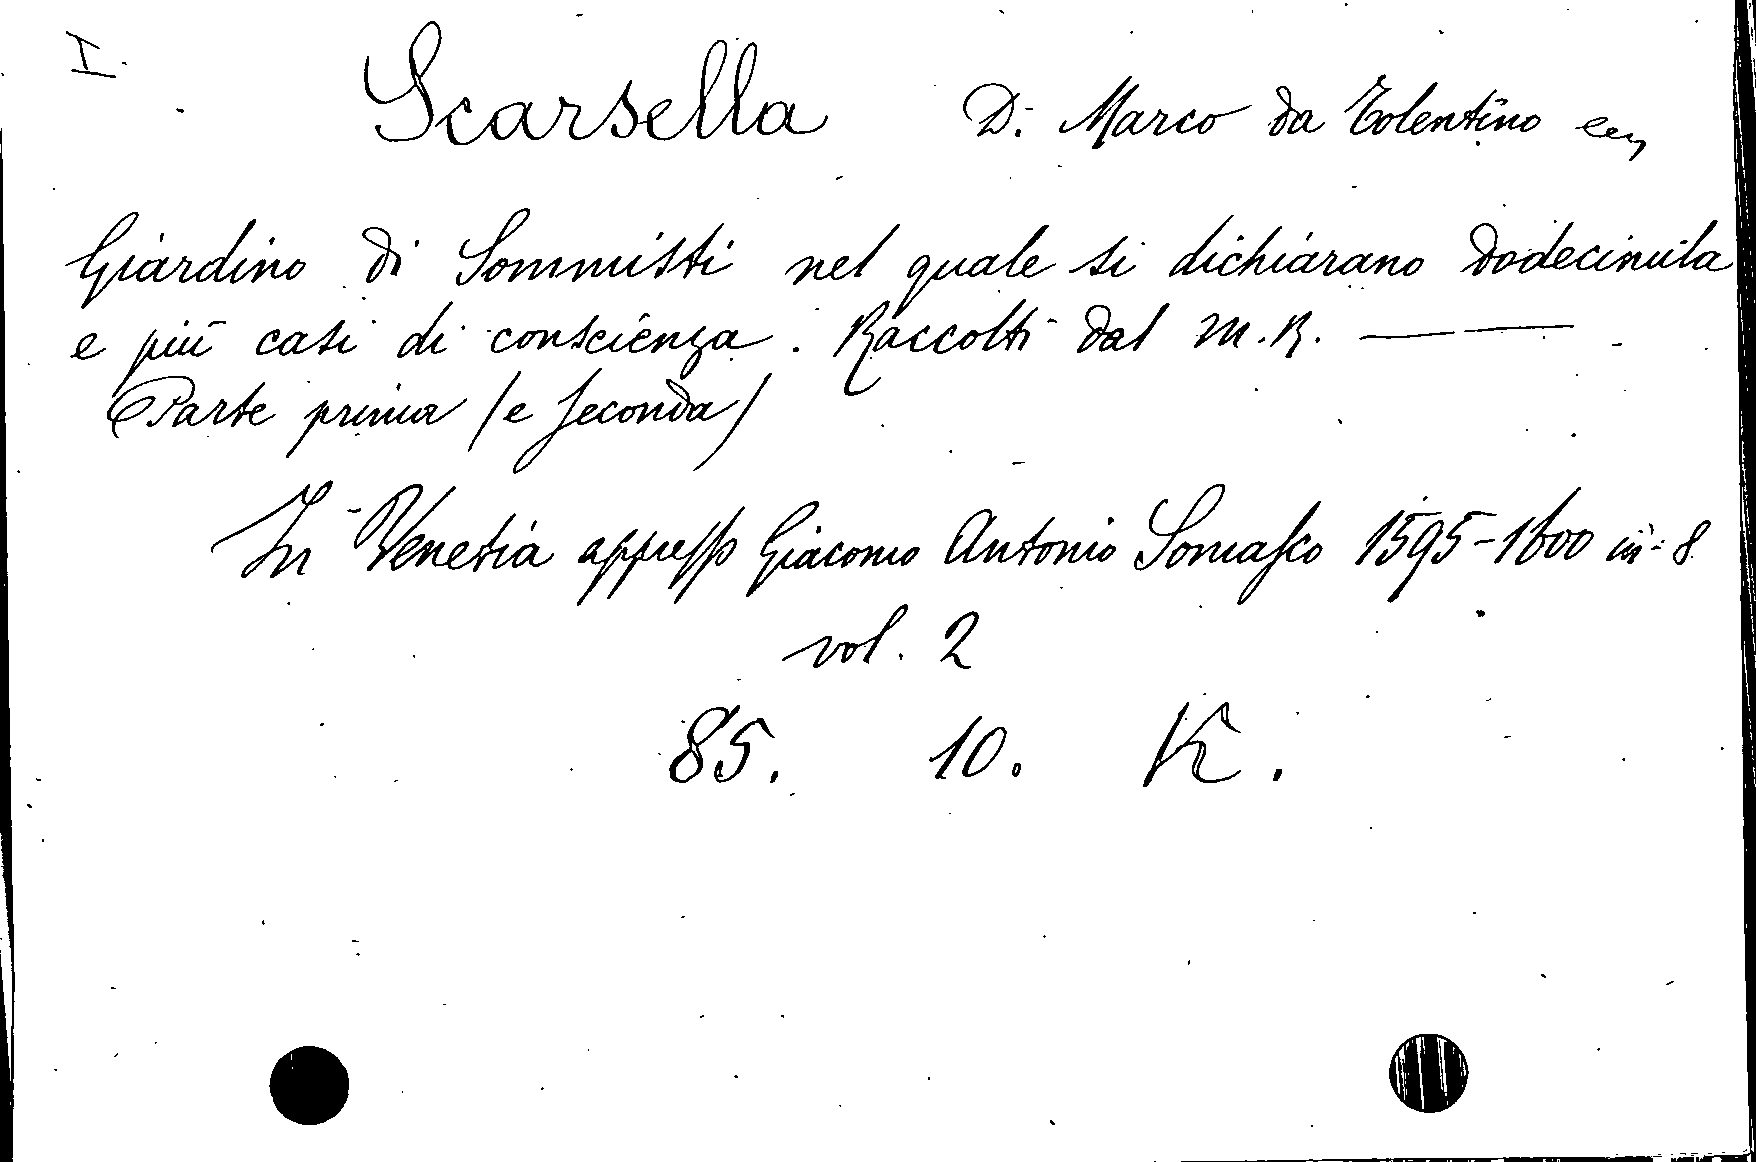 I.
Scarsella D. Marco da Tolentino
Giardino di Sommisti nel quale si dichiarano dodecimila
e più casi di conscienza. Raccolti dal M. R. — —
Parte prima (e seconda)
In Venetia appresso Giacomo Antonio Somasco 1595-1600 in-8
vol. 2
85. 10. K.